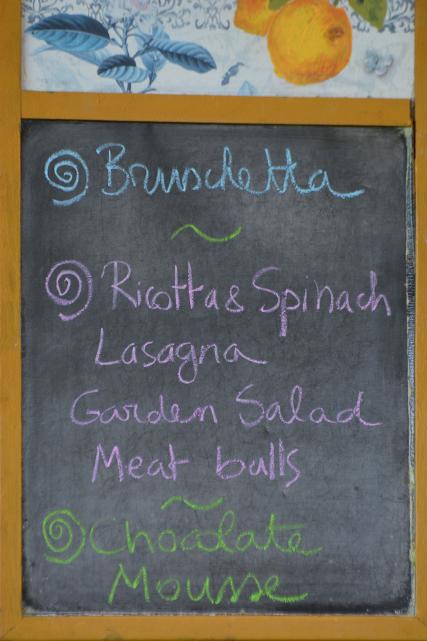 Bruschetta
Ricotta & Spinach
Lasagna
Garden Salad
Meat balls
Chocolate
Mousse